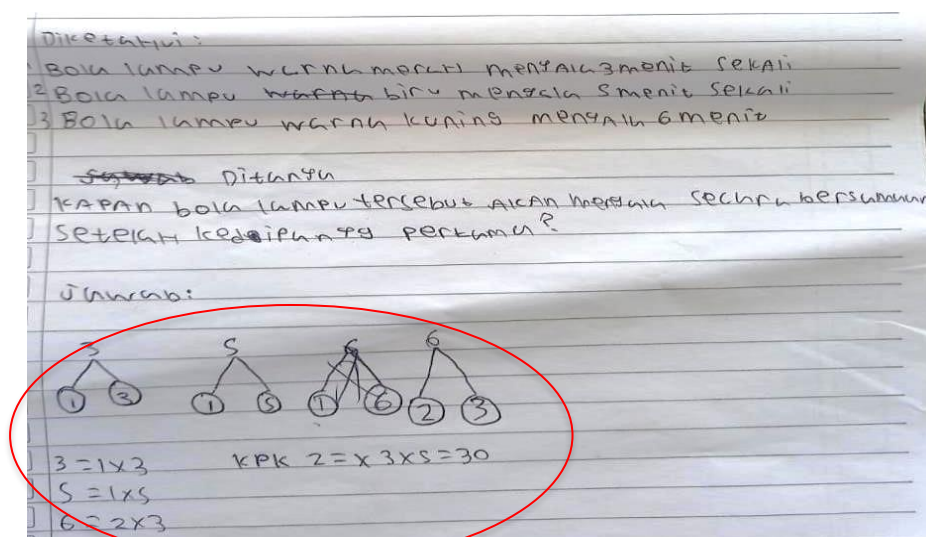 Diketahui:
1 Bola lampu warna merah menyala 3 menit sekali
2 Bola lampu warna biru menyala 5 menit sekali
3 Bola lampu warna kuning menyala 6 menit
Ditanya
KAPAN bola lampu tersebut AKAN menyala secara bersamaan
setelah kedipannya pertama?
Jawab:
3 5 6 6
1 3 1 5 1 6 2 3
3 = 1 x 3 KPK 2 = x 3 x 5 = 30
5 = 1 x 5
6 = 2 x 3